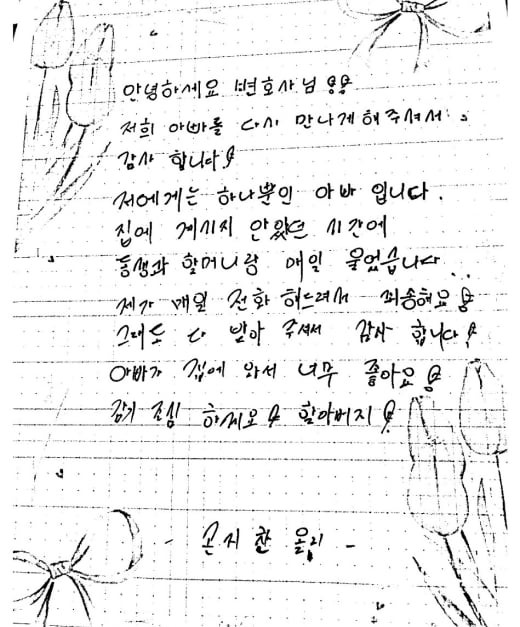 안녕하세요 변호사님!!
저희 아빠를 다시 만나게 해주셔서
감사 합니다!
저에게는 하나뿐인 아빠 입니다.
집에 계시지 안았던 시간에
동생과 할머니랑 매일 울었습니다..
제가 매일 전화 해드려서 죄송해요!
그래도 다 받아 주셔서 감사 합니다!
아빠가 집에 와서 너무 좋아요!
감기 조심 하세요! 할아버지!
- 손지찬 올림 -